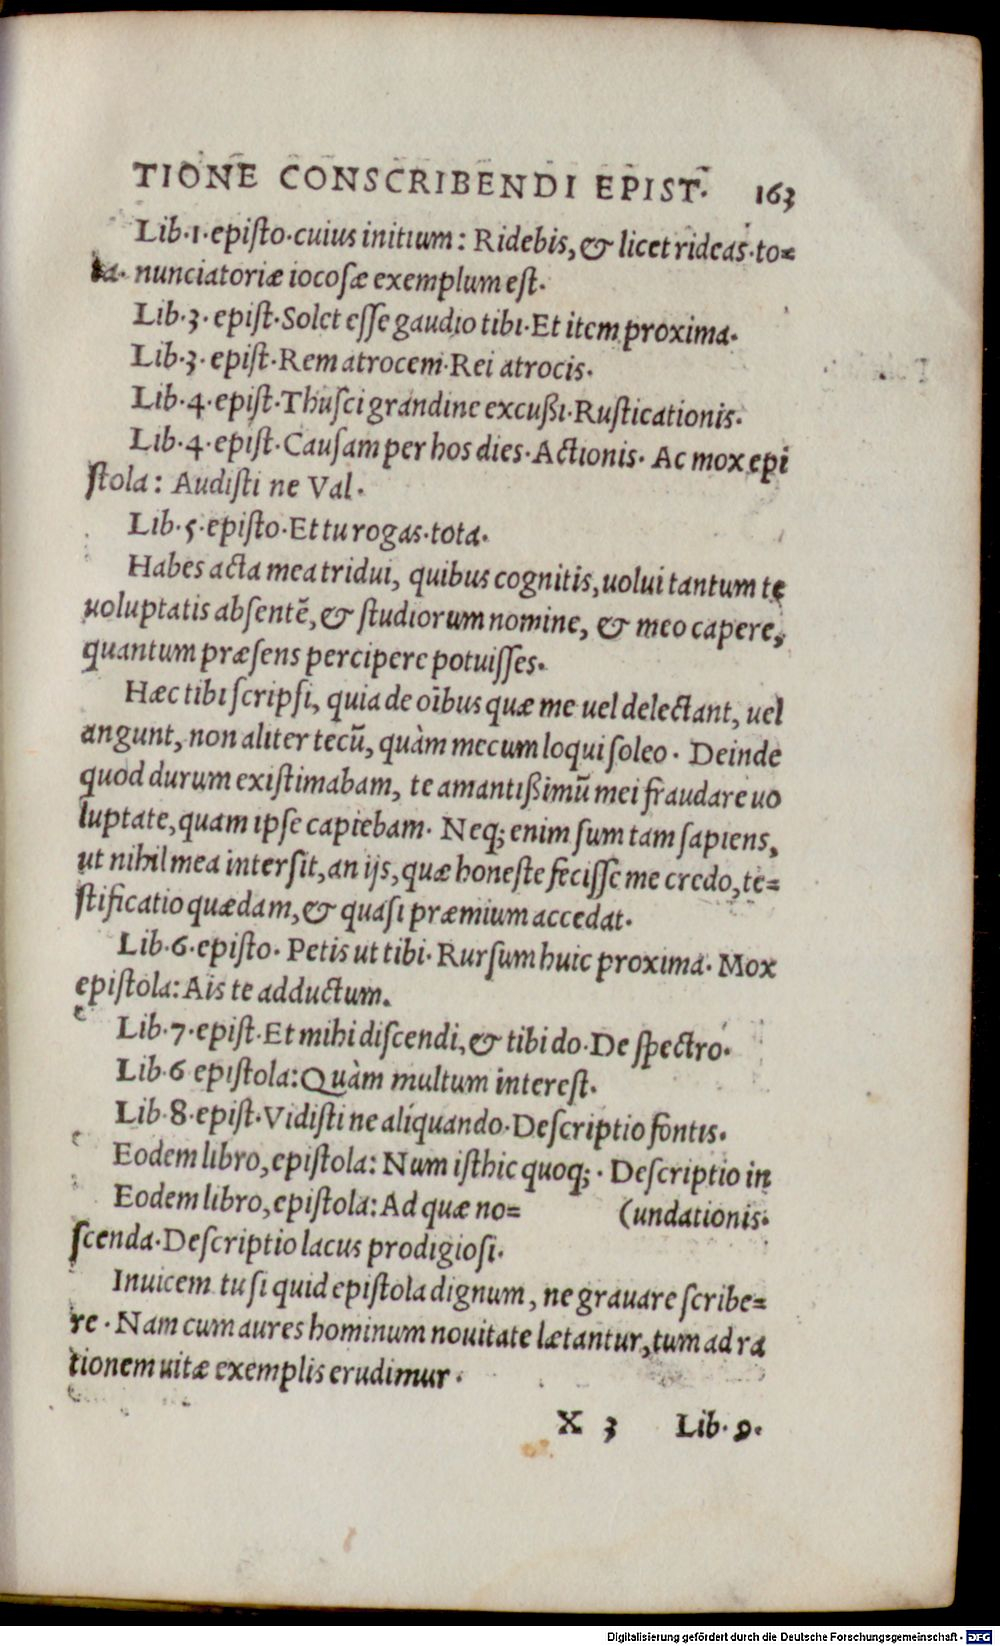 TIONE CONSCRIBENDI EPIST. 163
Lib·1·episto·cuius initium: Ridebis, & licet rideas·to=
ta· nunciatoriæ iocosæ exemplum est·
Lib·3· epist·Solet esse gaudio tibi·Et item proxima·
Lib·3· epist·Rem atrocem·Rei atrocis·
Lib·4·epist·Thusci grandine excußi·Rusticationis·
Lib·4·epist·Causam per hos dies·Actionis· Ac mox epi
stola: Audisti ne Val·
Lib·5·episto·Et tu rogas·tota·
Habes acta mea tridui, quibus cognitis, uolui tantum te
uoluptatis absentē, & studiorum nomine, & meo capere,
quantum præsens percipere potuisses·
Hæc tibi scripsi, quia de oībus quæ me uel delectant, uel
angunt, non aliter tecū, quàm mecum loqui soleo· Deinde
quod durum existimabam, te amantißimū mei fraudare uo
luptate, quam ipse capiebam· Neq; enim sum tam sapiens,
ut nihil mea intersit, an ijs, quæ honeste fecisse me credo, te=
stificatio quædam, & quasi præmium accedat·
Lib·6·episto· Petis ut tibi· Rursum huic proxima· Mox
epistola: Ais te adductum.
Lib·7·epist·Et mihi discendi, & tibi do·De spectro·
Lib·6 epistola: Quàm multum interest·
Lib·8·epist·Vidisti ne aliquando·Descriptio fontis·
Eodem libro, epistola: Num isthic quoq;· Descriptio in
Eodem libro, epistola: Ad quæ no= (undationis·
scenda·Descriptio lacus prodigiosi·
Inuicem tu si quid epistola dignum, ne grauare scribe=
re· Nam cum aures hominum nouitate lætantur, tum ad ra
tionem uitæ exemplis erudimur·
X 3 Lib·9·
Digitalisierung gefördert durch die Deutsche Forschungsgemeinschaft - DFG